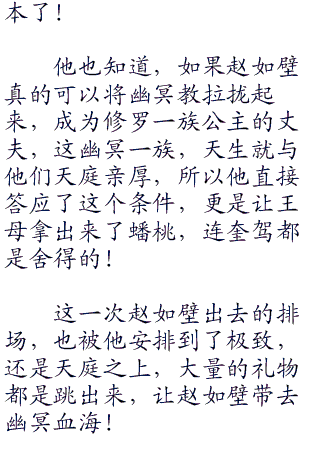 本了！
他也知道，如果赵如壁
真的可以将幽冥教拉拢起
来，成为修罗一族公主的丈
夫，这幽冥一族，天生就与
他们天庭亲厚，所以他直接
答应了这个条件，更是让王
母拿出来了蟠桃，连奎驾都
是舍得的！
这一次赵如壁出去的排
场，也被他安排到了极致，
还是天庭之上，大量的礼物
都是跳出来，让赵如壁带去
幽冥血海！